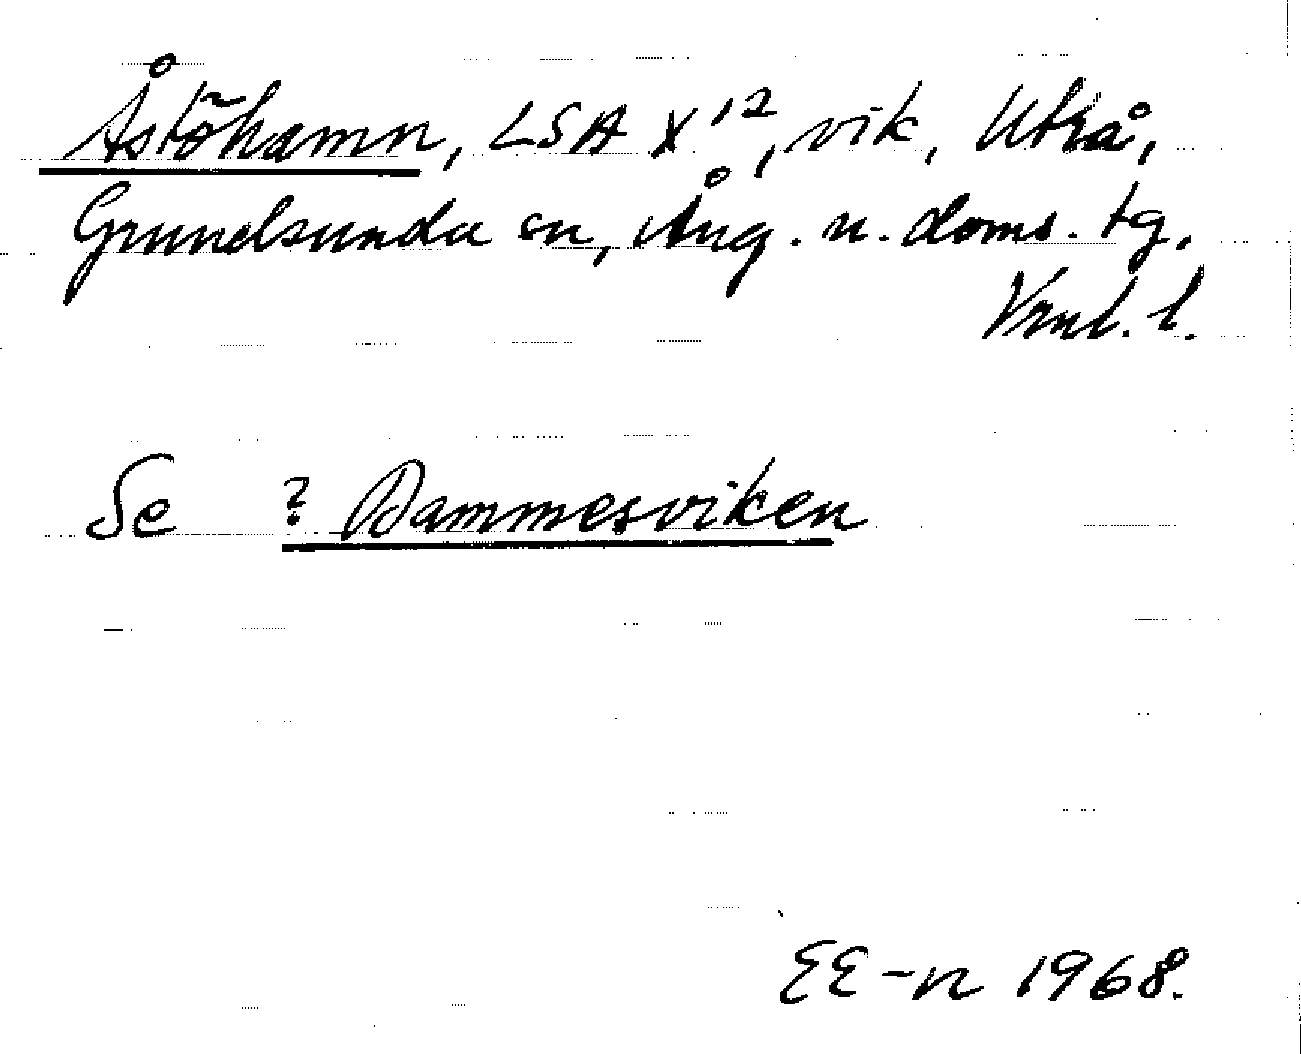 Åstöhamn, LSA X¹², vik, Utrå,
Grundsunda sn, Ång. n. doms. tg,
Vrnl. l.
Se ? Dammesviken
EE-n 1968.